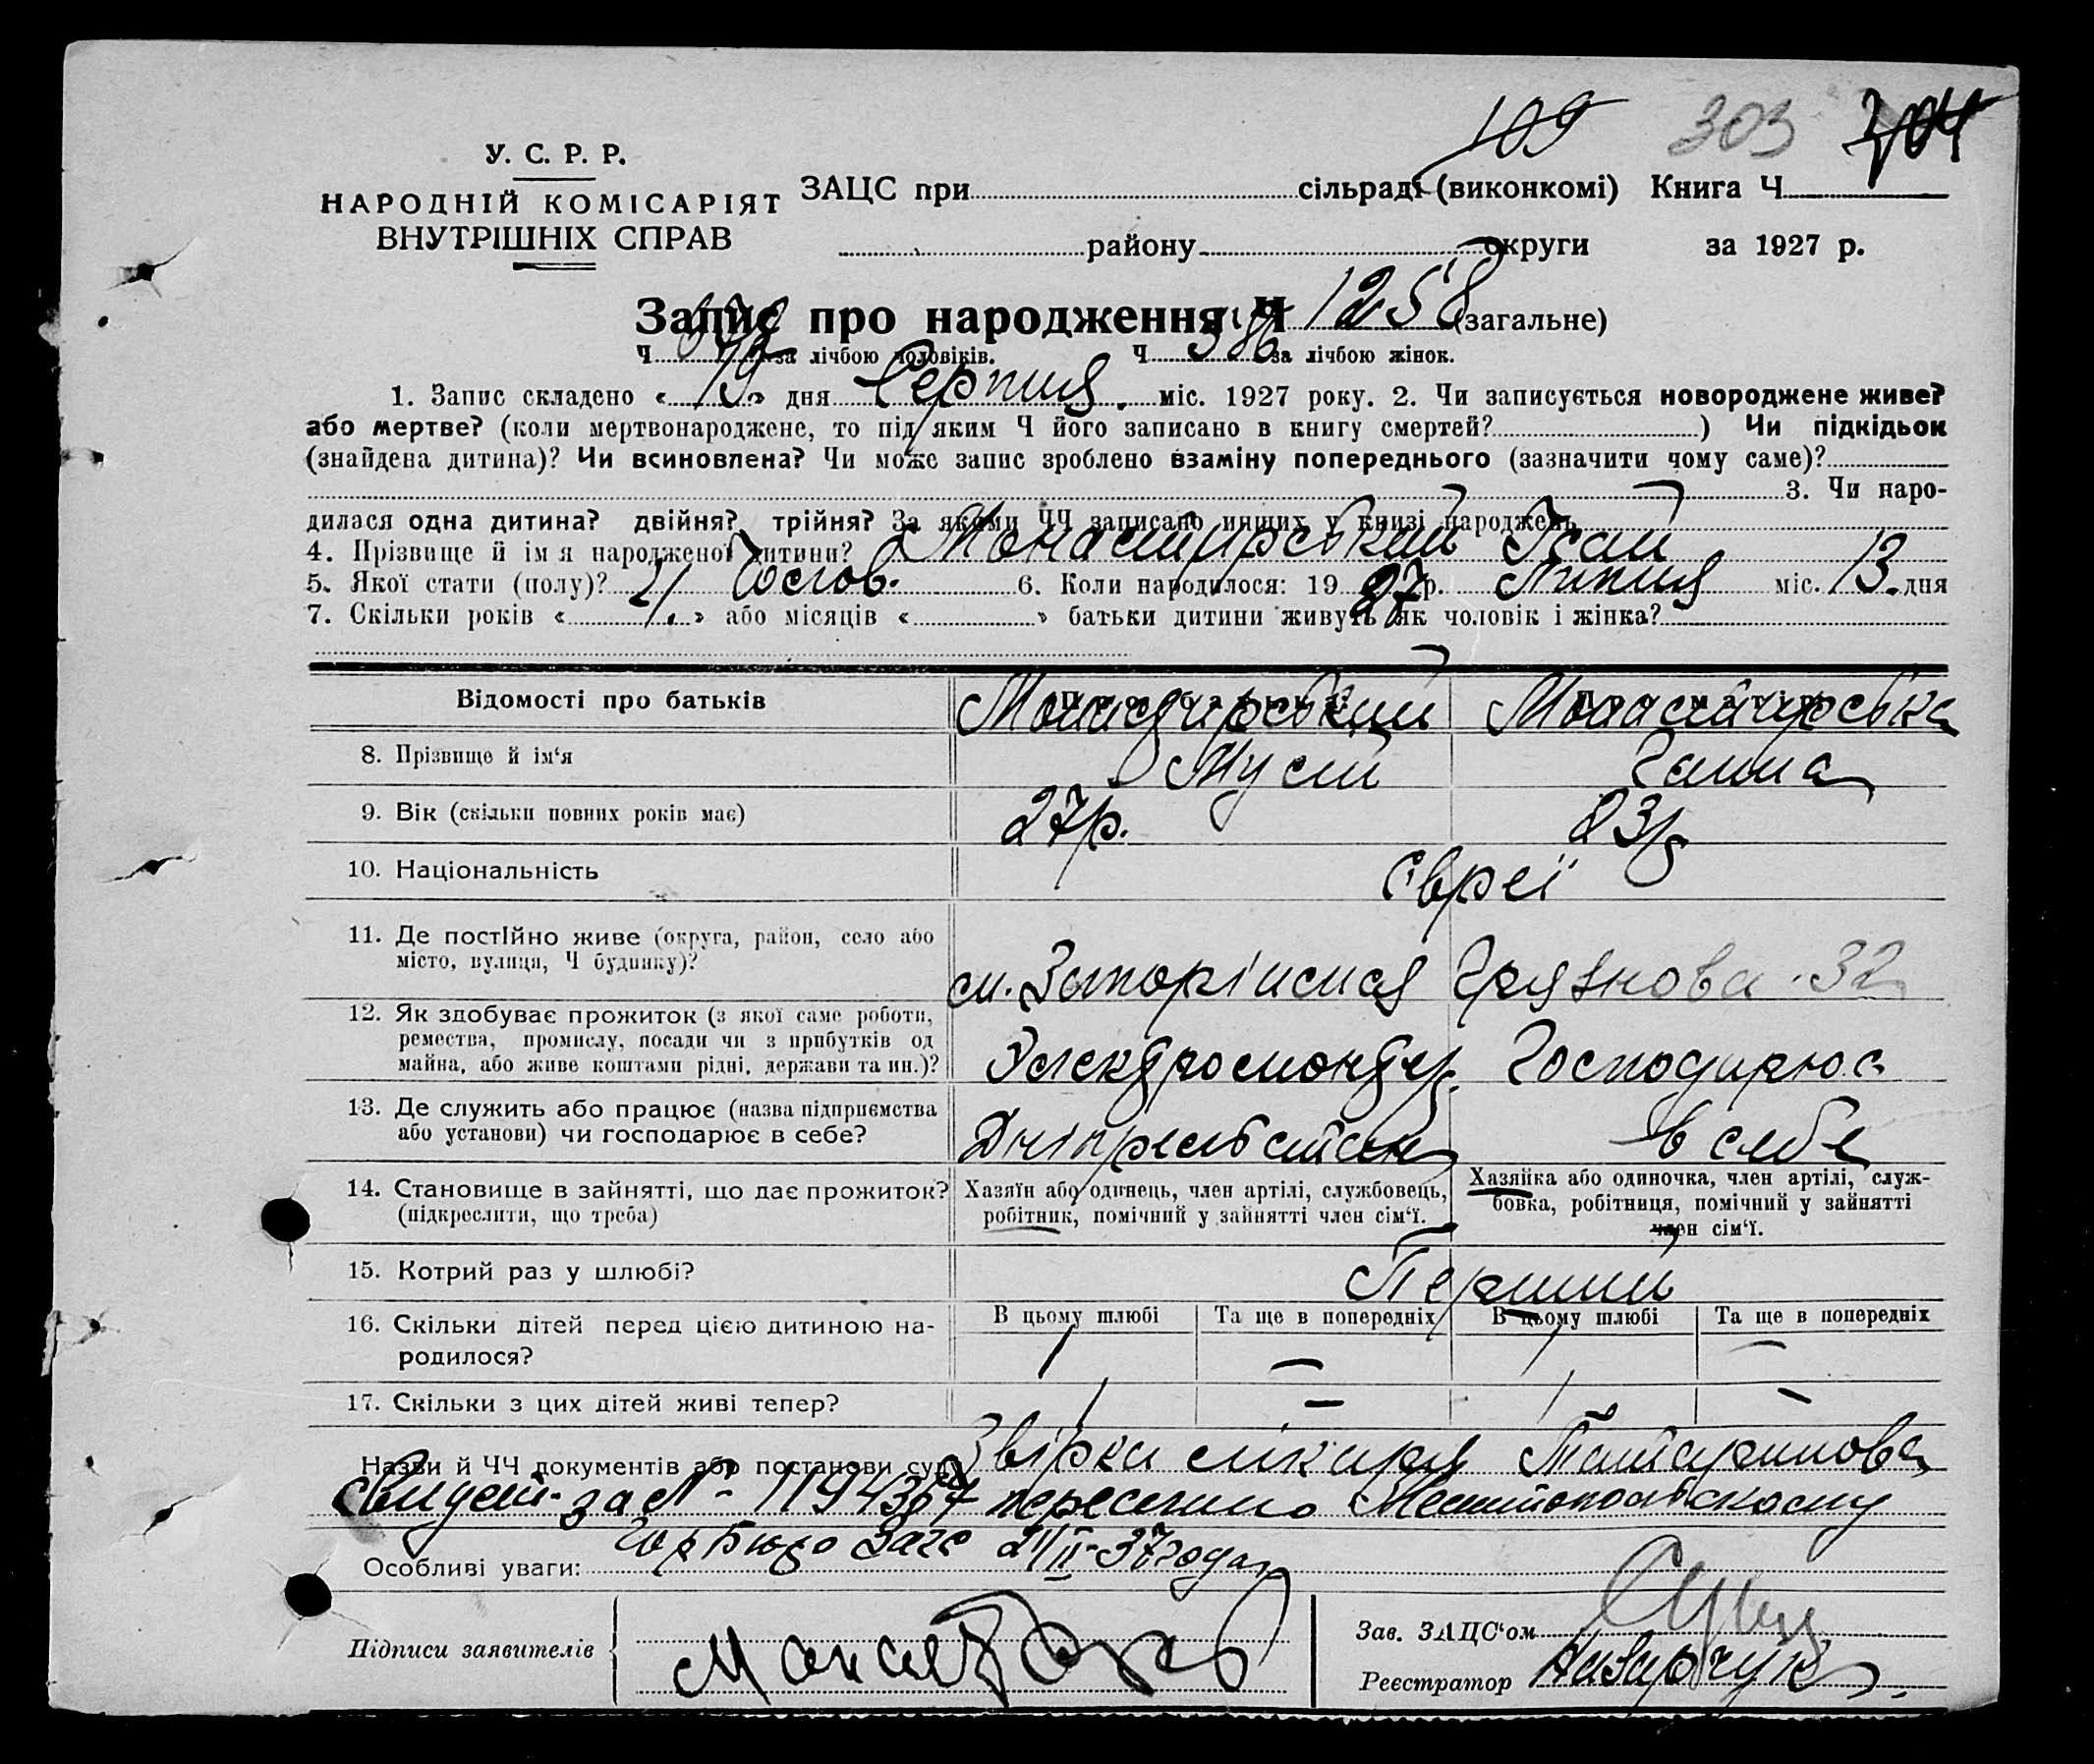 109 303 704
У. С. Р. Р.
НАРОДНІЙ КОМІСАРІЯТ
ВНУТРІШНІХ СПРАВ
ЗАЦС при сільраді (виконкомі) Книга Ч
району округи за 1927 р.
Запис про народження Ч 1258 (загальне)
Ч 672 за лічбою чоловіків. Ч 586 за лічбою жінок.
1. Запис складено « 19 » дня Серпня міс. 1927 року. 2. Чи записується новороджене живе?
або мертве? (коли мертвонароджене, то під яким Ч його записано в книгу смертей? ) Чи підкідьок
(знайдена дитина)? Чи всиновлена? Чи може запис зроблено взаміну попереднього (зазначити чому саме)?
3. Чи наро-
дилася одна дитина? двійня? трійня? За якими ЧЧ записано инших у книзі народжень
4. Прізвище й ім я народженої дитини? Монастирський Ісай
5. Якої стати (полу)? Чолов. 6. Коли народилося: 19 27 р. Липня міс. 13. дня
7. Скільки років « » або місяців « » батьки дитини живуть як чоловік і жінка?
Відомості про батьків Монастирський Монастирська
8. Прізвище й ім‘я Мусій Ганна
9. Вік (скільки повних років має) 27р. 23р
10. Національність Євреї
11. Де постійно живе (округа, район, село або
місто, вулиця, Ч будинку)? м. Запоріжжя Грязнова 32
12. Як здобуває прожиток (з якої саме роботи,
ремества, промислу, посади чи з прибутків од
майна, або живе коштами рідні, держави та ин.)? Електромонтер. Господарює
13. Де служить або працює (назва підприємства
або установи) чи господарює в себе? в себе
14. Становище в зайнятті, що дає прожиток?
(підкреслити, що треба)
Хазяїн або одинець, член артілі, службовець,
робітник, помічний у зайнятті член сім‘ї.
Хазяйка або одиночка, член артілі, служ-
бовка, робітниця, помічний у зайнятті
член сім‘ї.
15. Котрий раз у шлюбі? Перший
16. Скільки дітей перед цією дитиною на-
родилося?
В цьому шлюбі Та ще в попередніх В цьому шлюбі Та ще в попередніх
1 — 1 —
17. Скільки з цих дітей живі тепер? 1 — 1 —
Назви й ЧЧ документів або постанови суду лікаря
за № 119436 Мелитопольскому
Гор Бюро Загс 21/II-37 года
Особливі уваги:
Підписи заявителів
Зав. ЗАЦС‘ом
Реєстратор